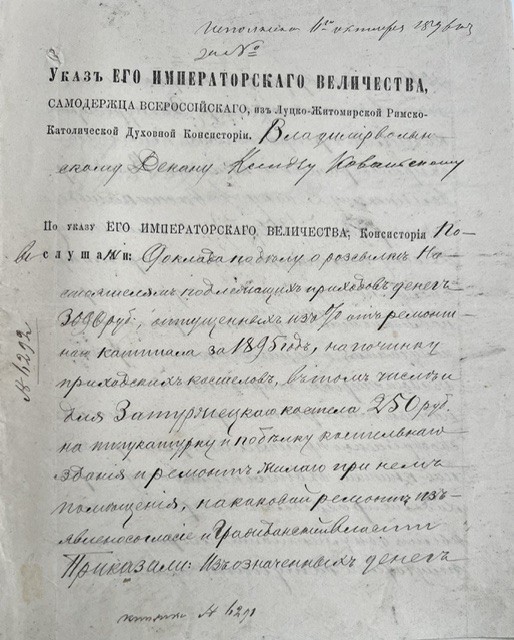 Исполнено 11го октября 189 года
за №
Указъ ЕГО ИМПЕРАТОРСКАГО ВЕЛИЧЕСТВА,
САМОДЕРЖЦА ВСЕРОССІЙСКАГО, изъ Луцко-Житомирской Римско-
Католической Духовной Консисторіи. Владимірволын
скому Декану Ксендзу
По указу ЕГО ИМПЕРАТОРСКАГО ВЕЛИЧЕСТВА, Консисторія По-
слушали: Докладъ по дѣлу о розсылкѣ На
стоятелямъ подлежащихъ приходовъ денегъ
3086 руб., отпущенныхъ изъ % отъ ремонт
наго капитала за 1895 годъ, на починку
приходскихъ костеловъ, въ томъ числѣ и
для Затурцецкаго костела 250 руб.
на штукатурку и побѣлку костельнаго
зданія и ремонтъ жилаго при немъ
помѣщенія, на каковой ремонтъ изъ-
явлено согласіе и Гражданской власти
Приказали: Изъ означенныхъ денегъ
№ 6292
№ 6291